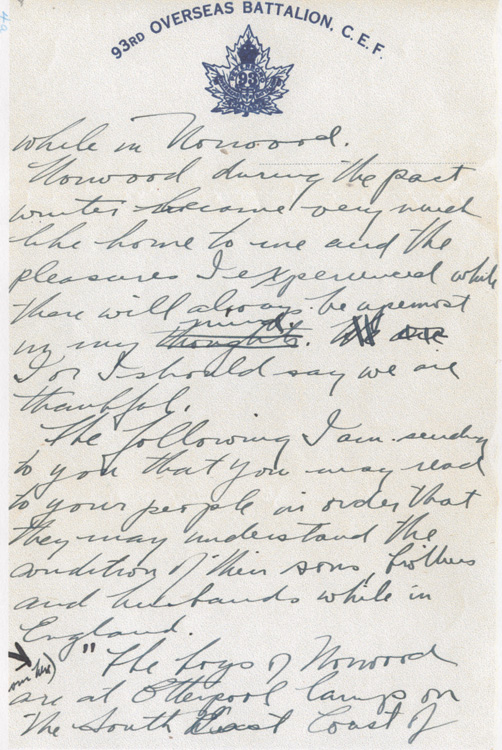 93RD OVERSEAS BATTALION, C.E.F.
93
while in Norwood.
Norwood during the past
winter became very much
like home to me and the
pleasures I experienced while
there will always be upermost
minds.
in my thoughts. We are
I or I should say we are
thankful.
The following I am sending
to you that you may read
to your people in order that
they may understand the
condition of their sons, brothers
and husbands while in
England.
"The boys of Norwood
from here)
are at Otterpool Camp on
the South East Coast of